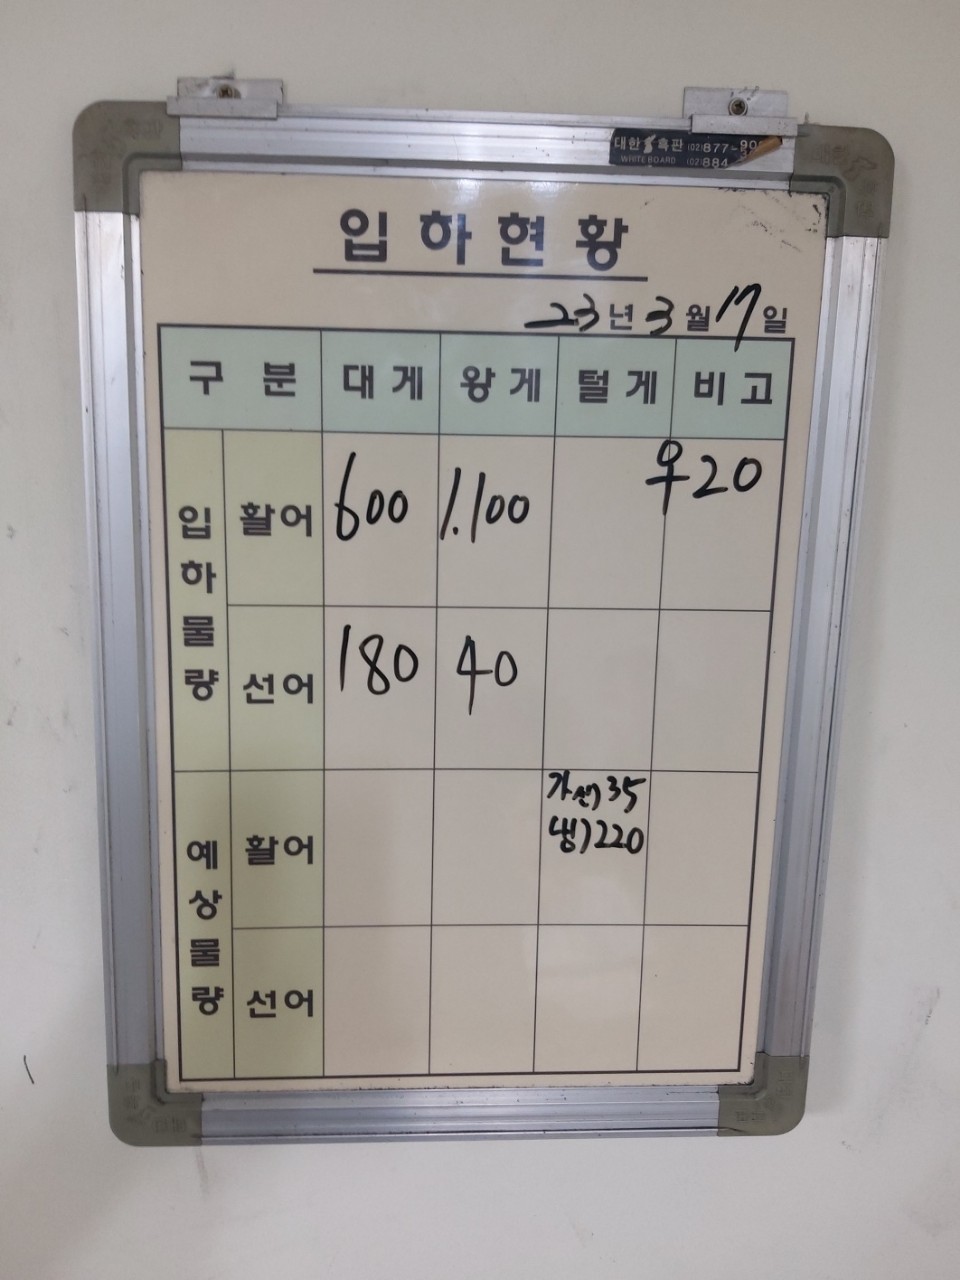 대한 흑판 (02)877-90
WHITE BOARD (02)884
입하현황
23년 3월 17일
구분 대게 왕게 털게 비고
입하물량
활어 600 1.100 우20
선어 180 40
예상물량
활어 가선) 35
냉) 220
선어